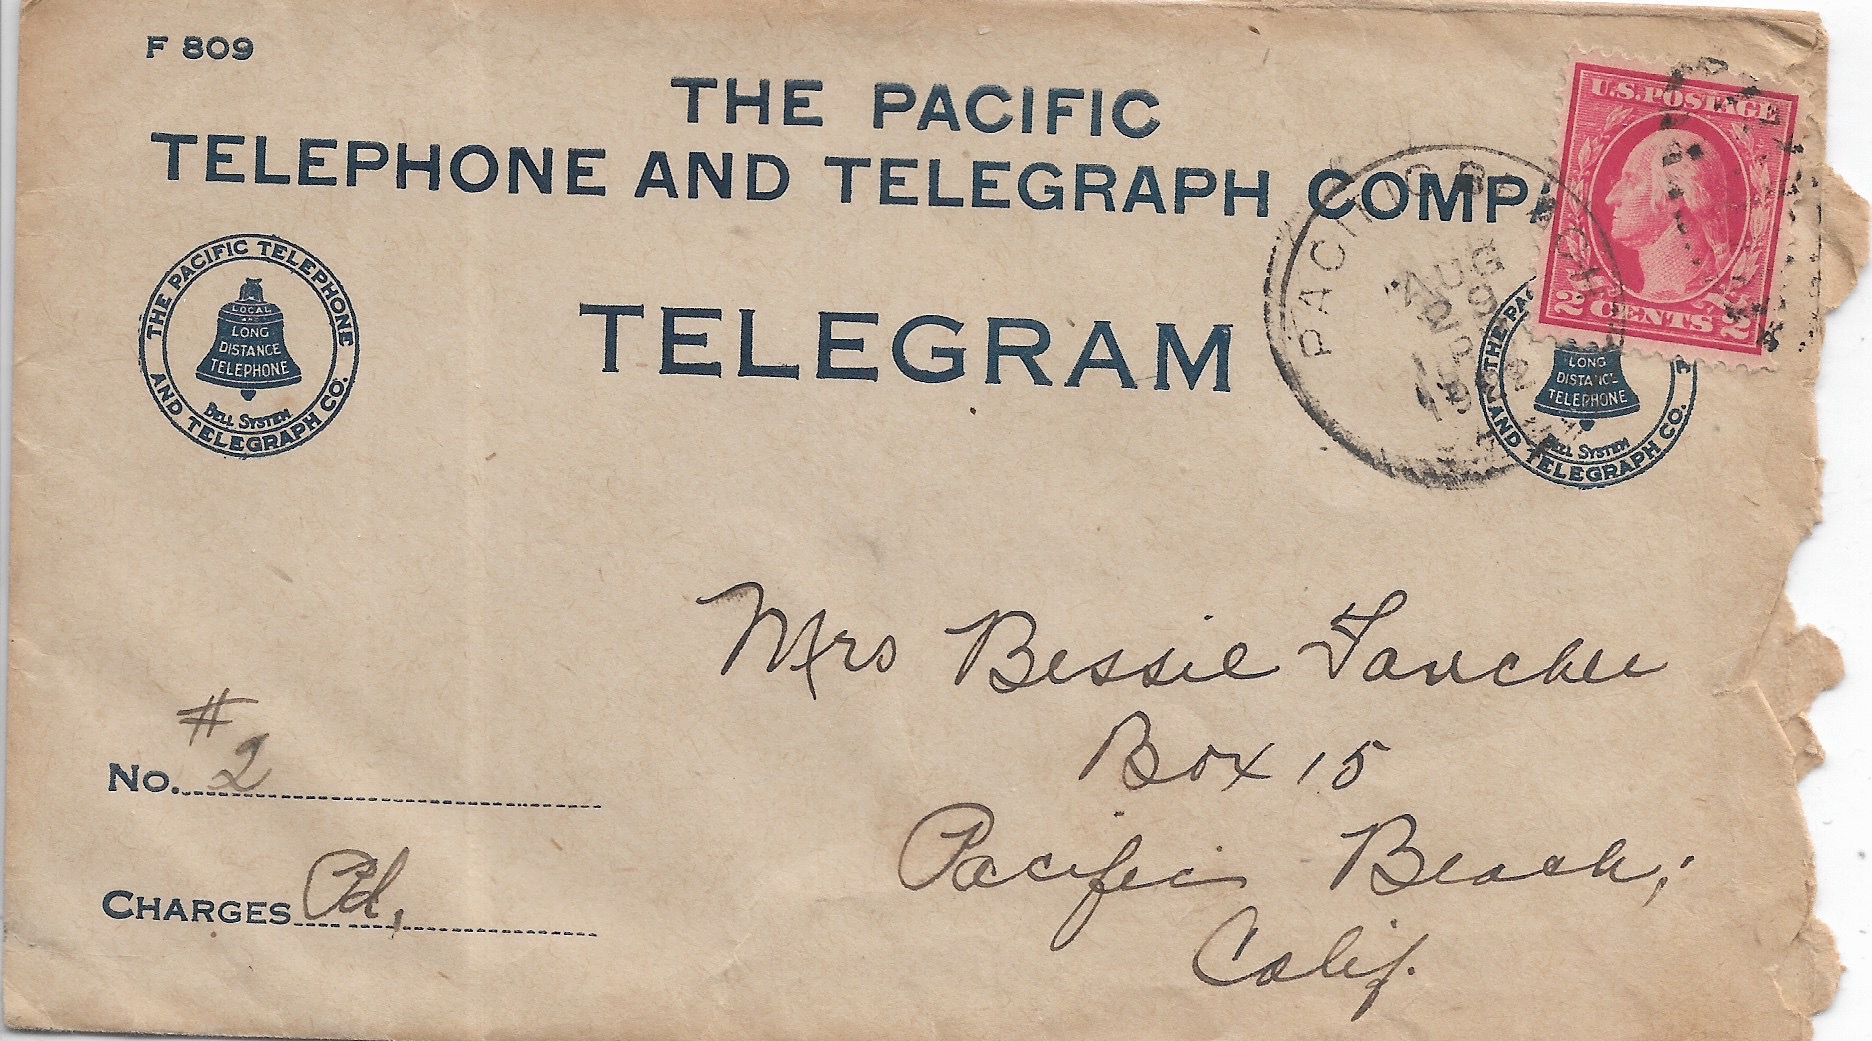 F 809
THE PACIFIC
TELEPHONE AND TELEGRAPH COMP
TELEGRAM
THE PACIFIC TELEPHONE
AND TELEGRAPH CO.
LOCAL
AND
LONG
DISTANCE
TELEPHONE
BELL SYSTEM
U.S. POSTAGE
2 CENTS 2
PACIFIC BEACH
AUG
THE PAC
LONG
DISTANCE
TELEPHONE
BELL SYSTEM
AND TELEGRAPH CO.
Mrs Bessie
Box 15
Pacific Beach,
Calif.
#2
No.
CHARGES Pd.